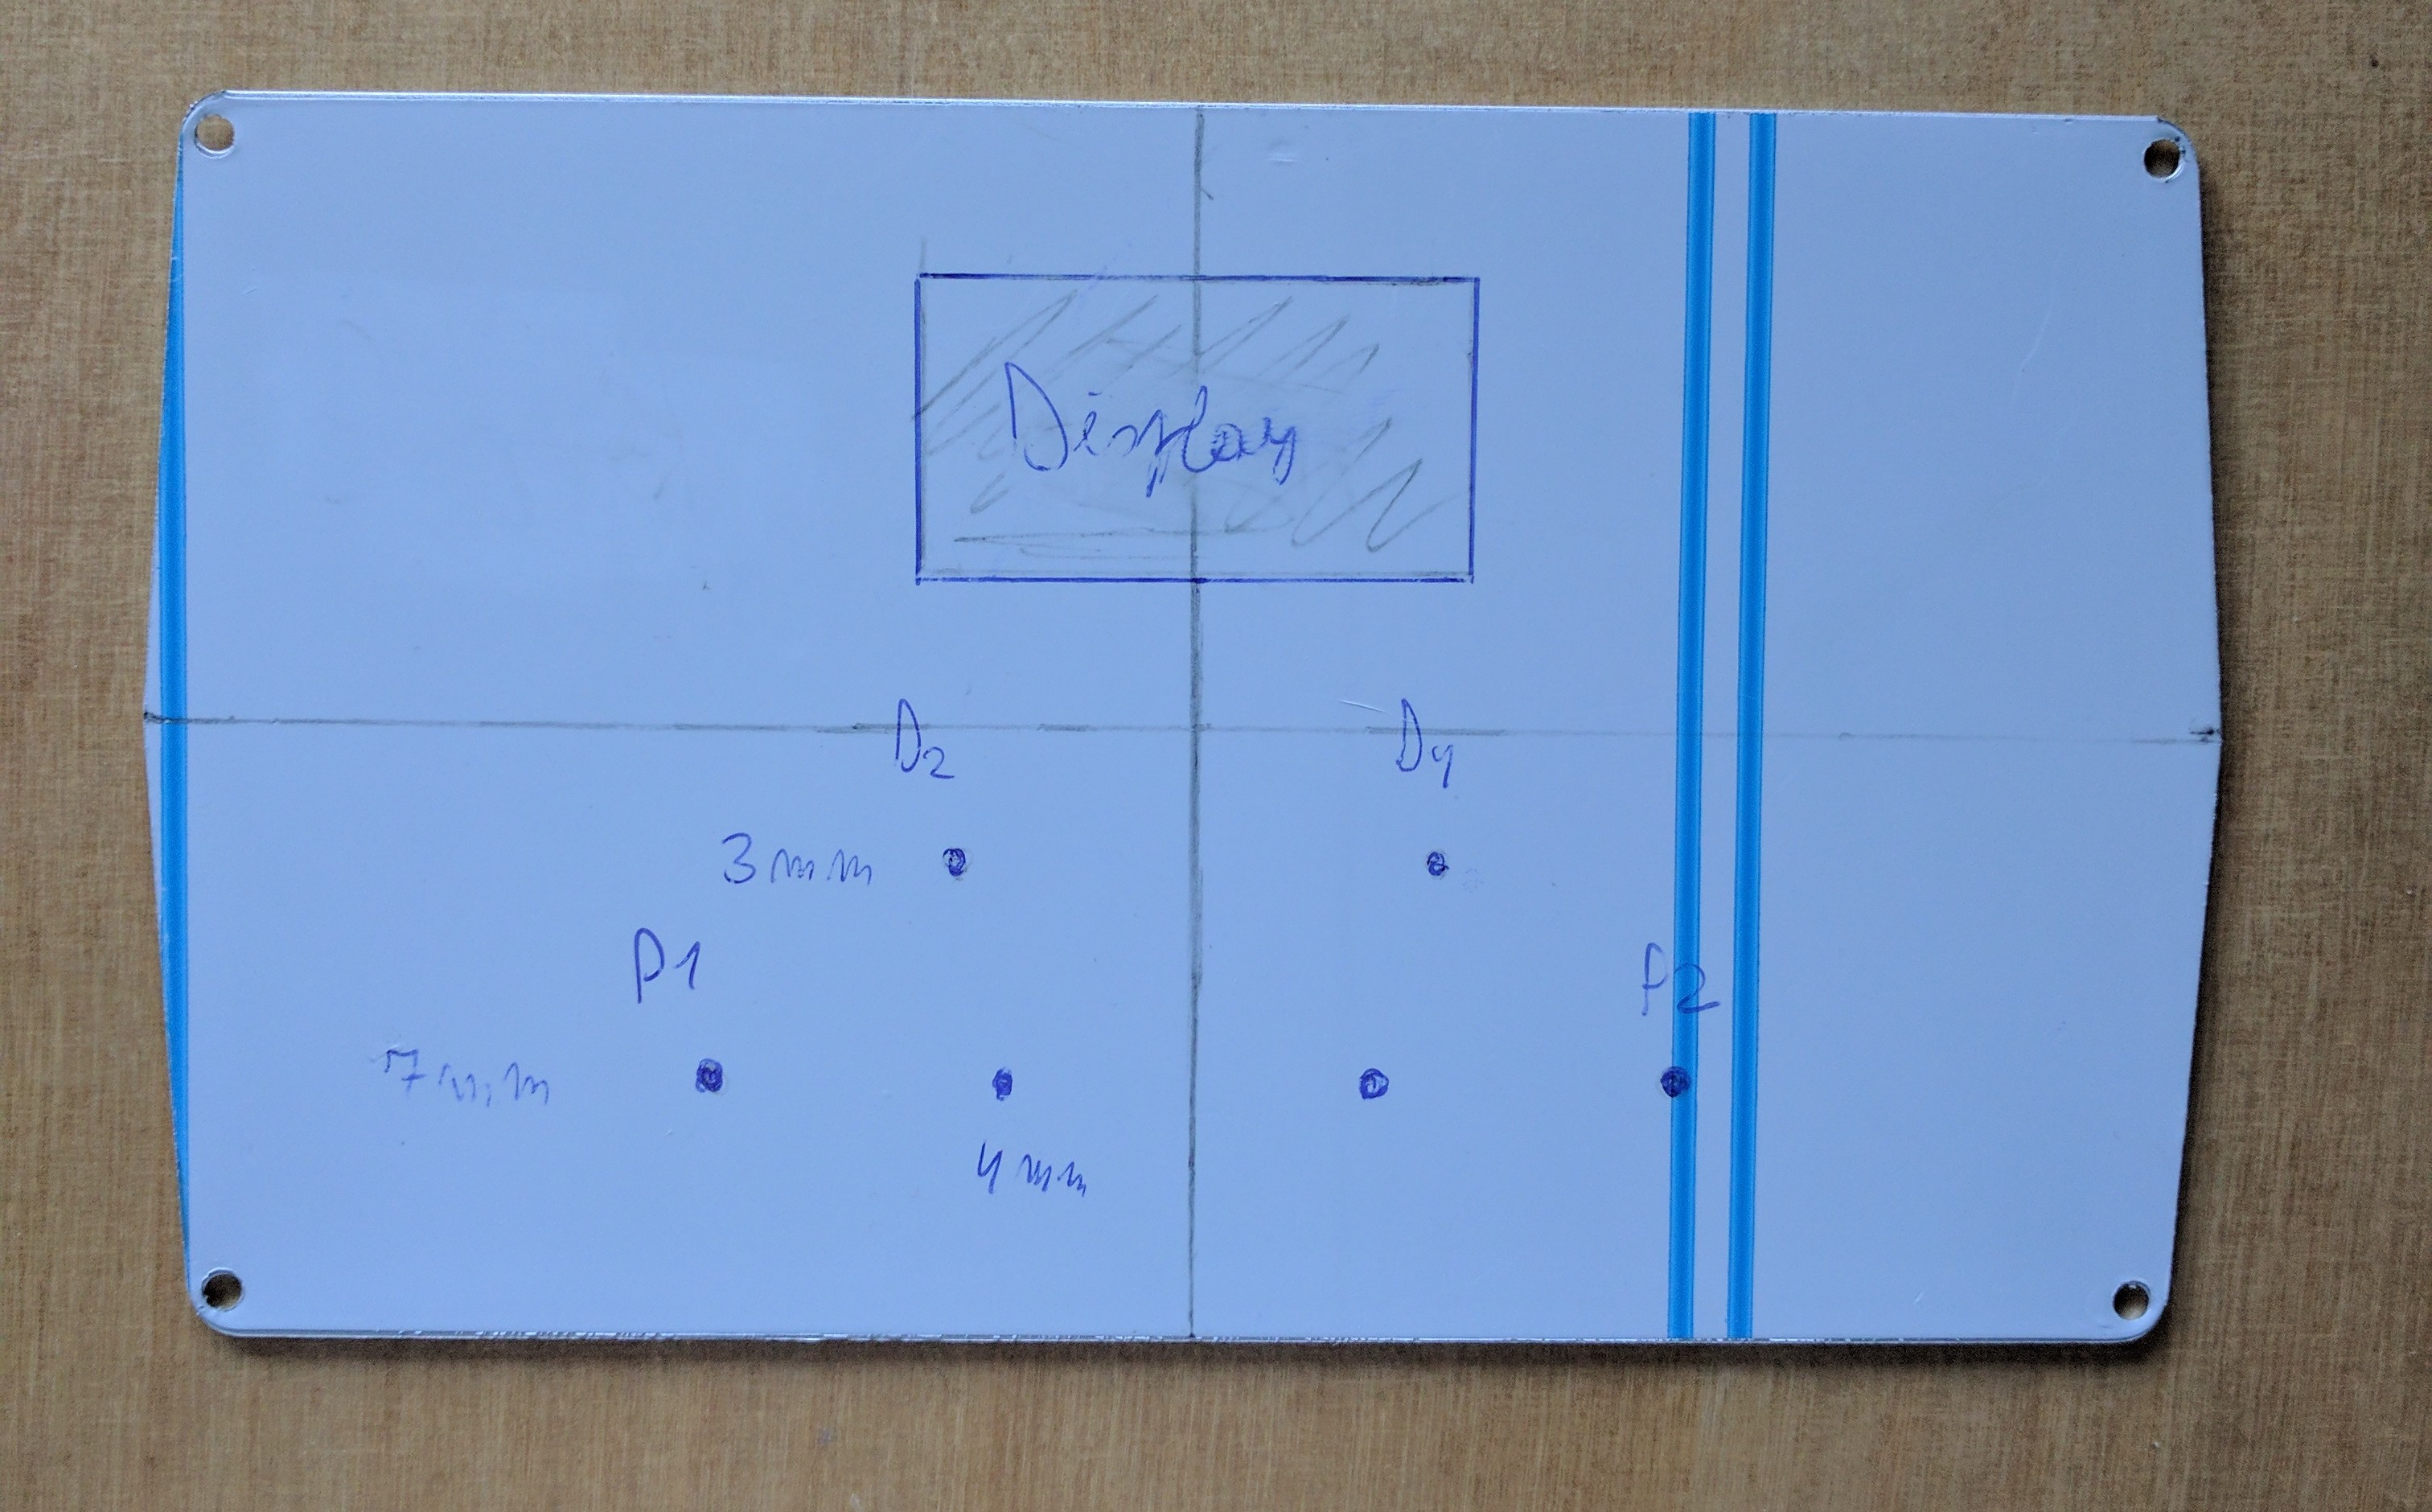 Display
D2 D4
3mm
P1 P2
7mm
4mm